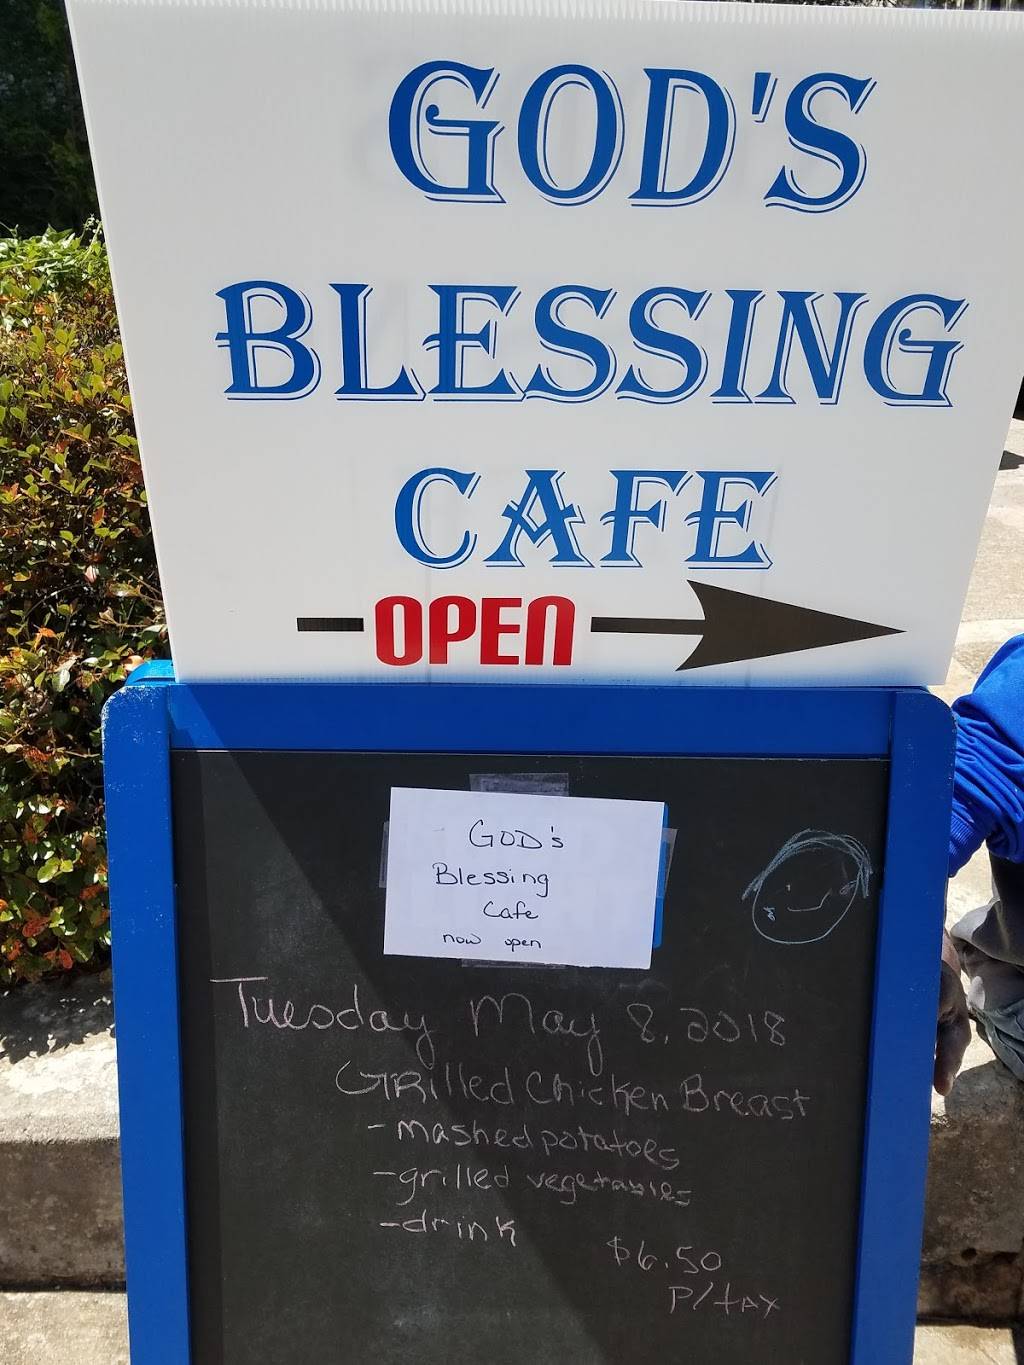 GOD'S
BLESSING
CAFE
OPEN
GOD's
Blessing
Cafe
now open
Tuesday May 8, 2018
GRilled Chicken Breast
-mashed potatoes
-grilled vegetables
-drink
$6.50
P/tax